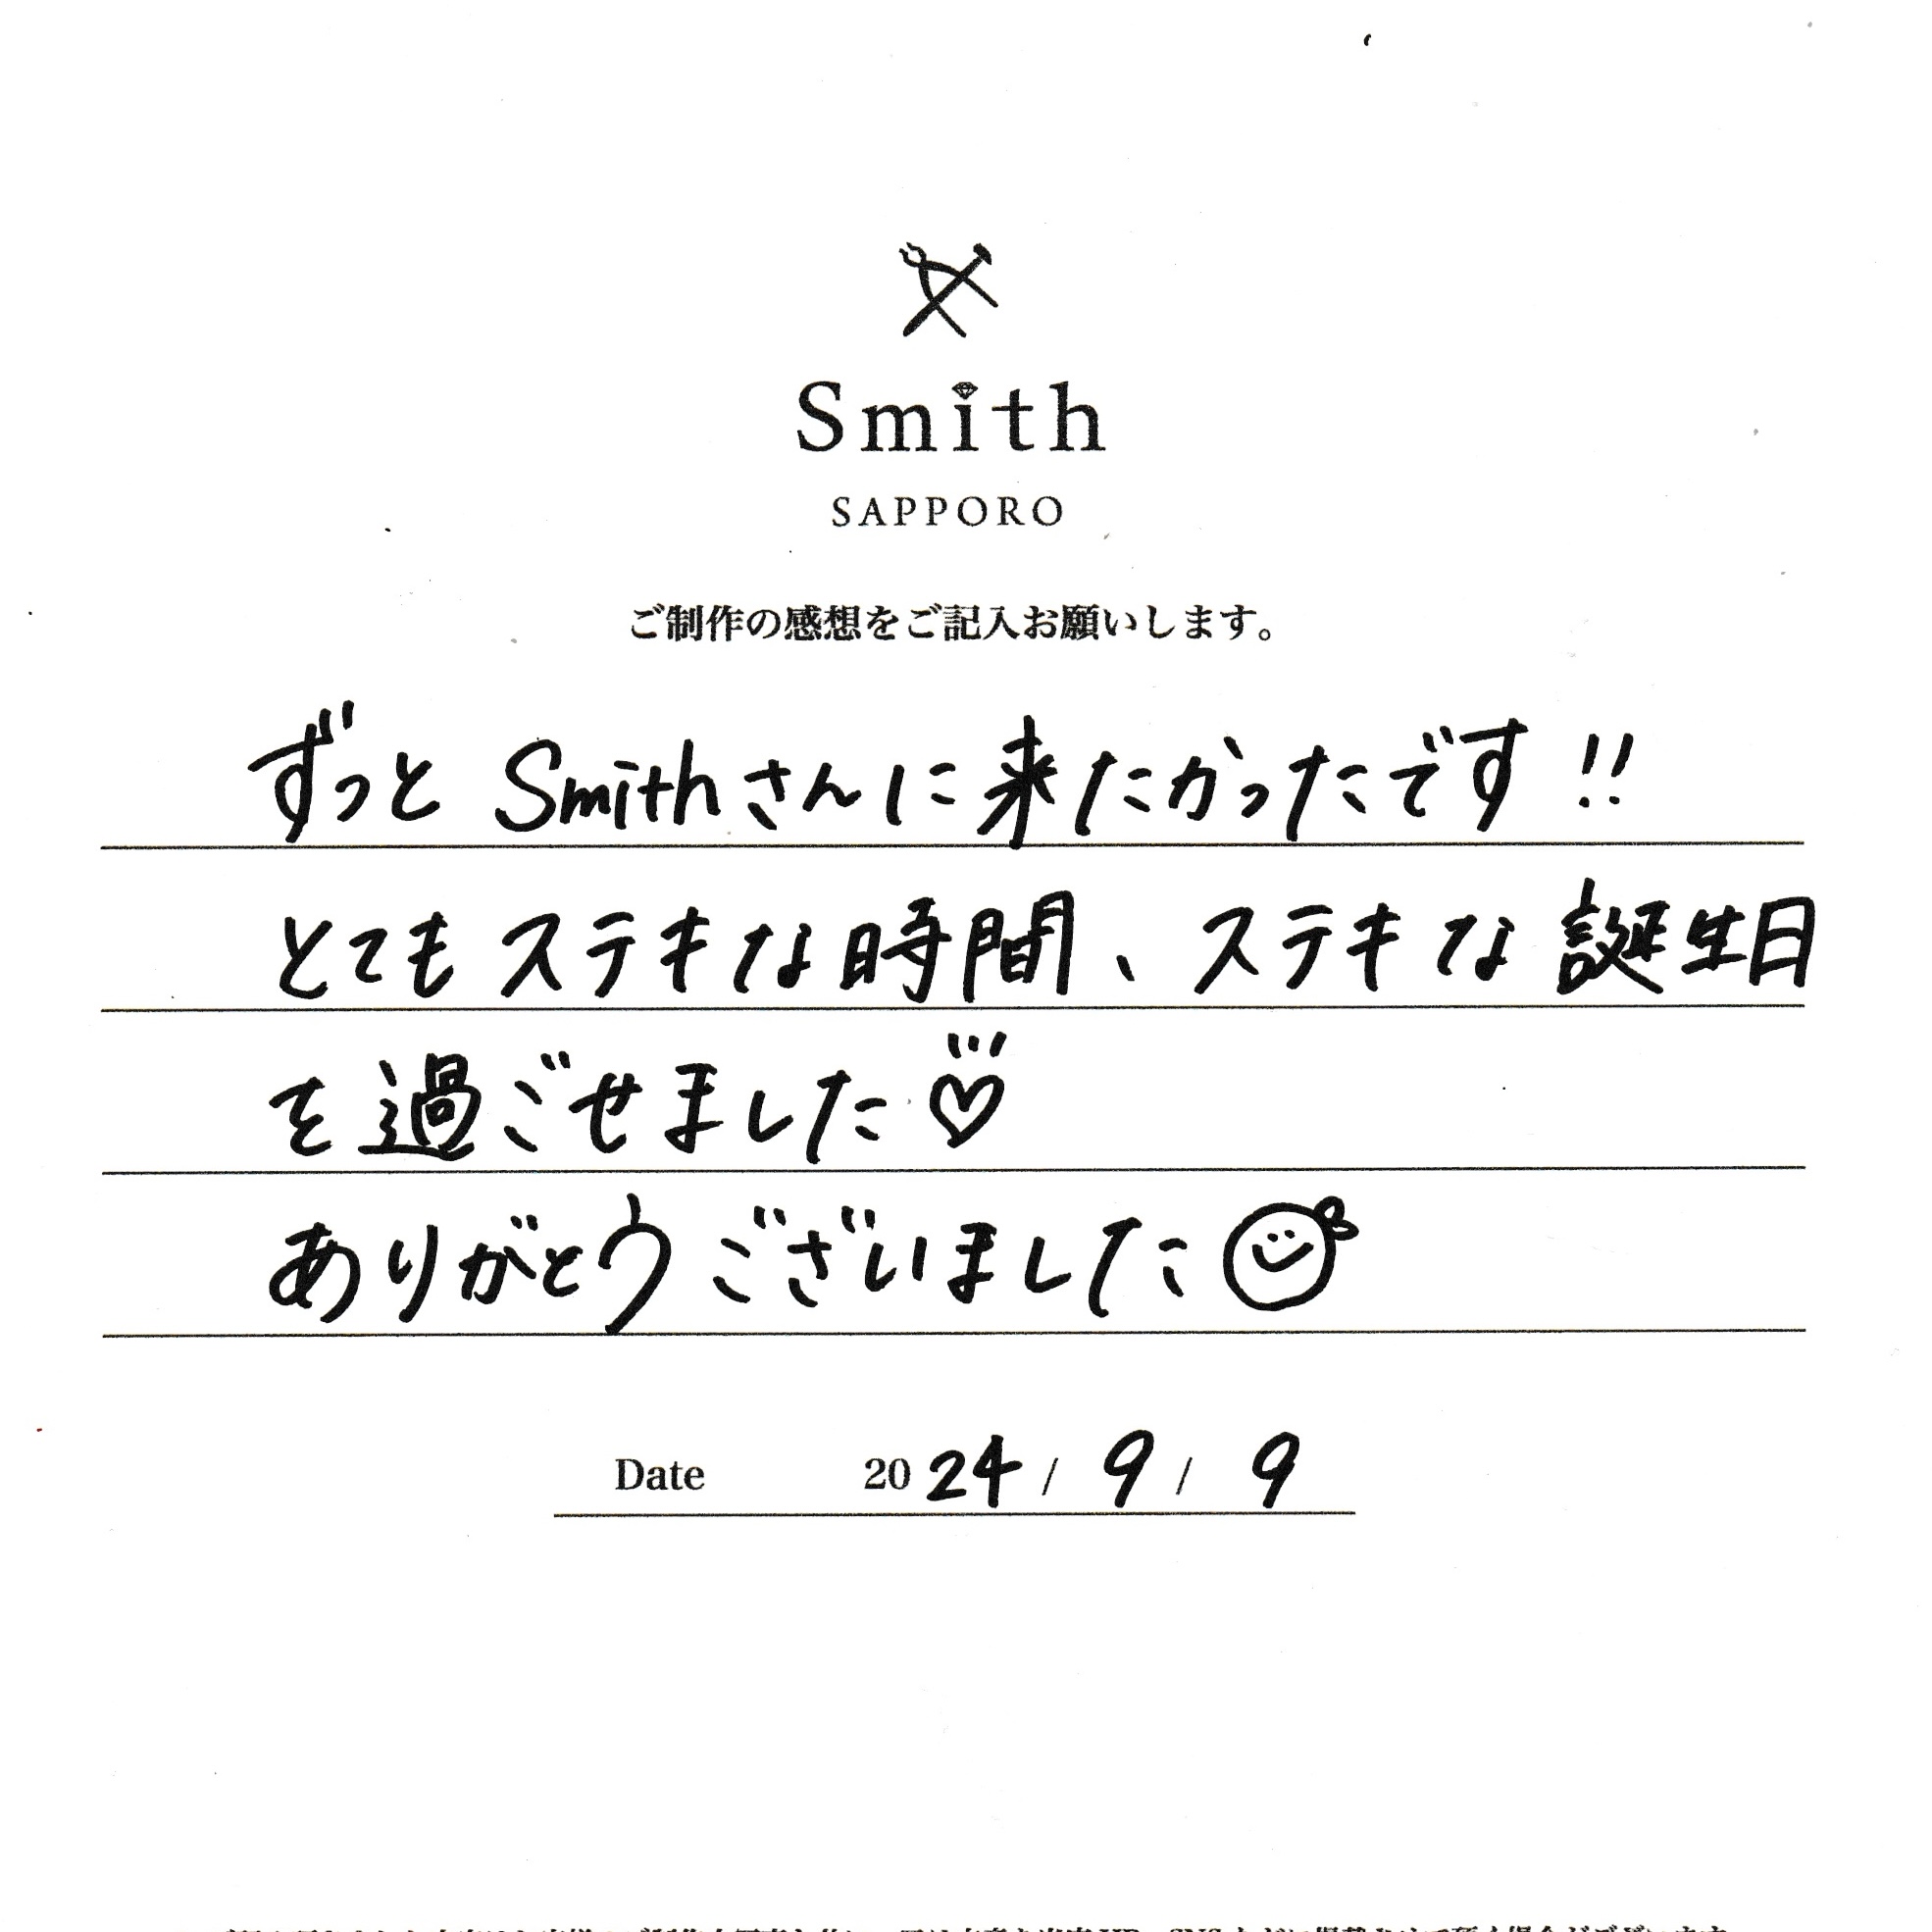 Smith
SAPPORO
ご制作の感想をご記入お願いします。
ずっと Smithさんに来たかったです!!
とてもステキな時間、ステキな誕生日
を過ごせました♡
ありがとうございました
Date 2024/9/9